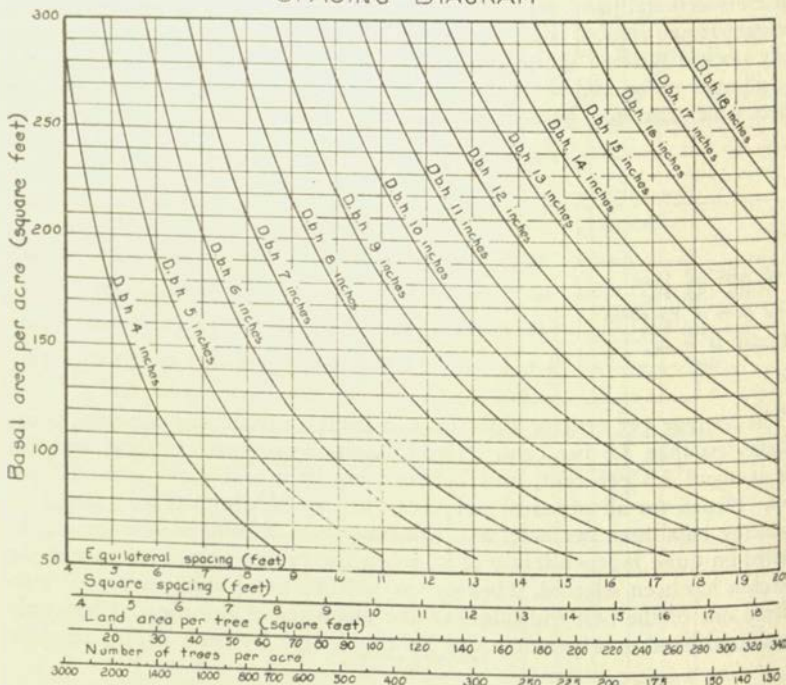 SPACING DIAGRAM
Basal area per acre (square feet)
300
250
200
150
100
50
D.b.h. 4 inches
D.b.h. 5 inches
D.b.h. 6 inches
D.b.h. 7 inches
D.b.h. 8 inches
D.b.h. 9 inches
D.b.h. 10 inches
D.b.h. 11 inches
D.b.h. 12 inches
D.b.h. 13 inches
D.b.h. 14 inches
D.b.h. 15 inches
D.b.h. 16 inches
D.b.h. 17 inches
D.b.h. 18 inches
Equilateral spacing (feet)
4 5 6 7 8 9 10 11 12 13 14 15 16 17 18 19 20
Square spacing (feet)
4 5 6 7 8 9 10 11 12 13 14 15 16 17 18
Land area per tree (square feet)
20 30 40 50 60 70 80 90 100 120 140 160 180 200 220 240 260 280 300 320 340
Number of trees per acre
3000 2000 1400 1000 800 700 600 500 400 300 250 225 200 175 150 140 130